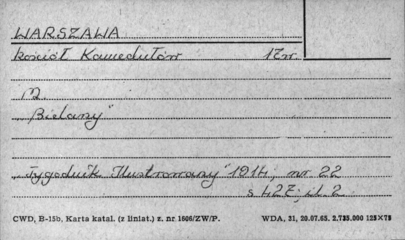 WARSZAWA
kościół Kamedułów 17 w.
M.
"Bielany"
"Tygodnik Ilustrowany" 1914, nr. 22
s 427; il. 2
CWD, B-15b, Karta katal. (z liniat.) z. nr 1606/ZW/P. WDA, 31, 20.07.65. 2.735.000 125×75